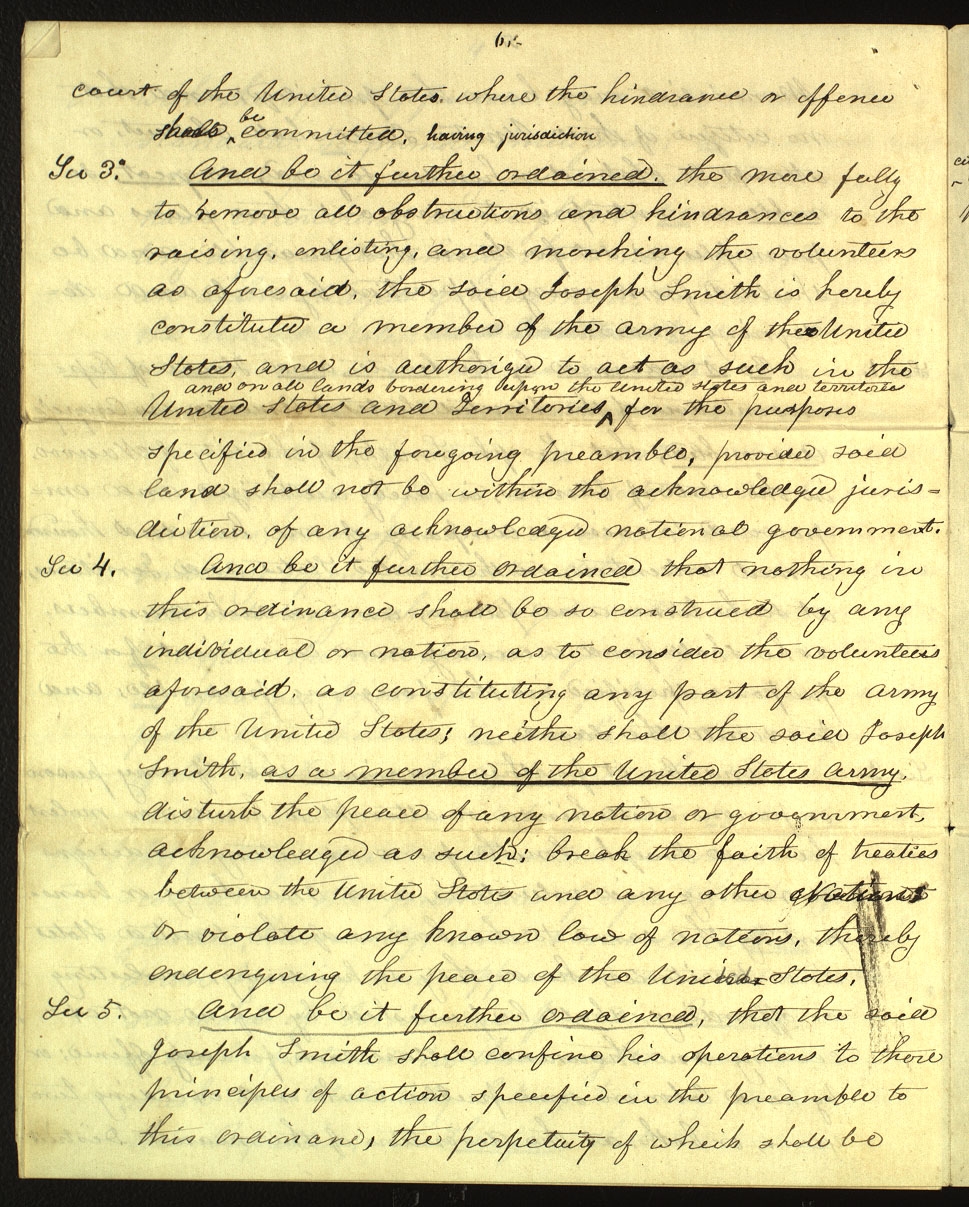 6.
court of the United States. where the hindrance or offence
shall be committed, having jurisdiction
Sec 3. And be it further ordained. the more fully
to remove all obstructions and hindrances to the
raising, enlisting, and marching the volunteers
as aforesaid, the said Joseph Smith is hereby
constituted a member of the army of the United
States, and is authorized to act as such in the
and on all lands bordering upon the United States and territories
United States and Territories, for the purposes
specified in the foregoing preamble, provided said
land shall not be within the acknowledged juris=
diction, of any acknowledged national government.
Sec 4. And be it further ordained that nothing in
this ordinance shall be so construed by any
individual or nation, as to consider the volunteers
aforesaid, as constituting any part of the army
of the United States; neither shall the said Joseph
Smith, as a member of the United States army,
disturb the peace of any nation or government,
acknowledged as such; break the faith of treaties
between the United States and any other Nations
or violate any known law of nations, thereby
endangering the peace of the United States.
Sec 5. And be it further ordained, that the said
Joseph Smith shall confine his operations to those
principles of action specified in the preamble to
this ordinance, the perpetuity of which shall be